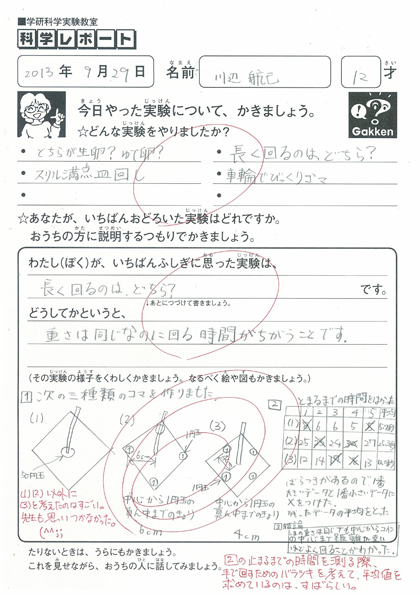 ■学研科学実験教室
科学レポート
2013年 9月29日 名前 川辺 12才
きょう じっけん
今日やった実験について、かきましょう。
☆どんな実験をやりましたか?
Gakken
• どちらが生卵?ゆで卵? • 長く回るのは、どちら?
• スリル満点皿回し • 車輪でびっくりゴマ
☆あなたが、いちばんおどろいた実験はどれですか。
おうちの方に説明するつもりでかきましょう。
わたし(ぼく)が、いちばんふしぎに思った実験は、
長く回るのは、どちら? です。
↓あとにつづけて書きましょう。
どうしてかというと、
重さは同じなのに回る時間がちがうことです。
(その実験の様子をくわしくかきましょう。なるべく絵や図もかきましょう。)
1 次の三種類のコマを作りました。
(1) (2) (3)
50円玉
1円玉
中心から1円玉の真ん中まできょり
6cm
中心から1円玉の真ん中まできょり
4cm
(1)(2)以外に
(3)を考えたのはすごい。
先生も思いつかなかった。
(^^;;)
2 とまるまでの時間をはかった
1 2 3 4 5 平均
ばらつきがあるので1番
大きいデータと1番小さいデータに
Xをつけた。
たりないときは、うらにもかきましょう。
これを見せながら、おうちの人に話してみましょう。
2の止まるまでの時間を測る際、
手で回すためのバラツキを考えて、平均値を
求めているのは、すばらしい。